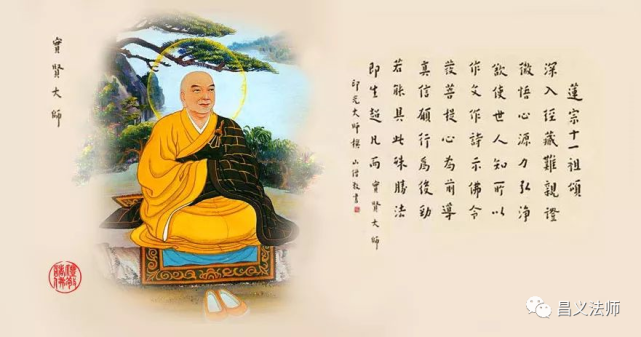 實賢大師
蓮宗十一祖頌
深入經藏難親證
徹悟心源力弘淨
欲使世人知所以
作文作詩示佛令
發菩提心為前導
真信願行為後勁
若能具此殊勝法
即生超凡而實賢大師
印光大師撰
昌义法师